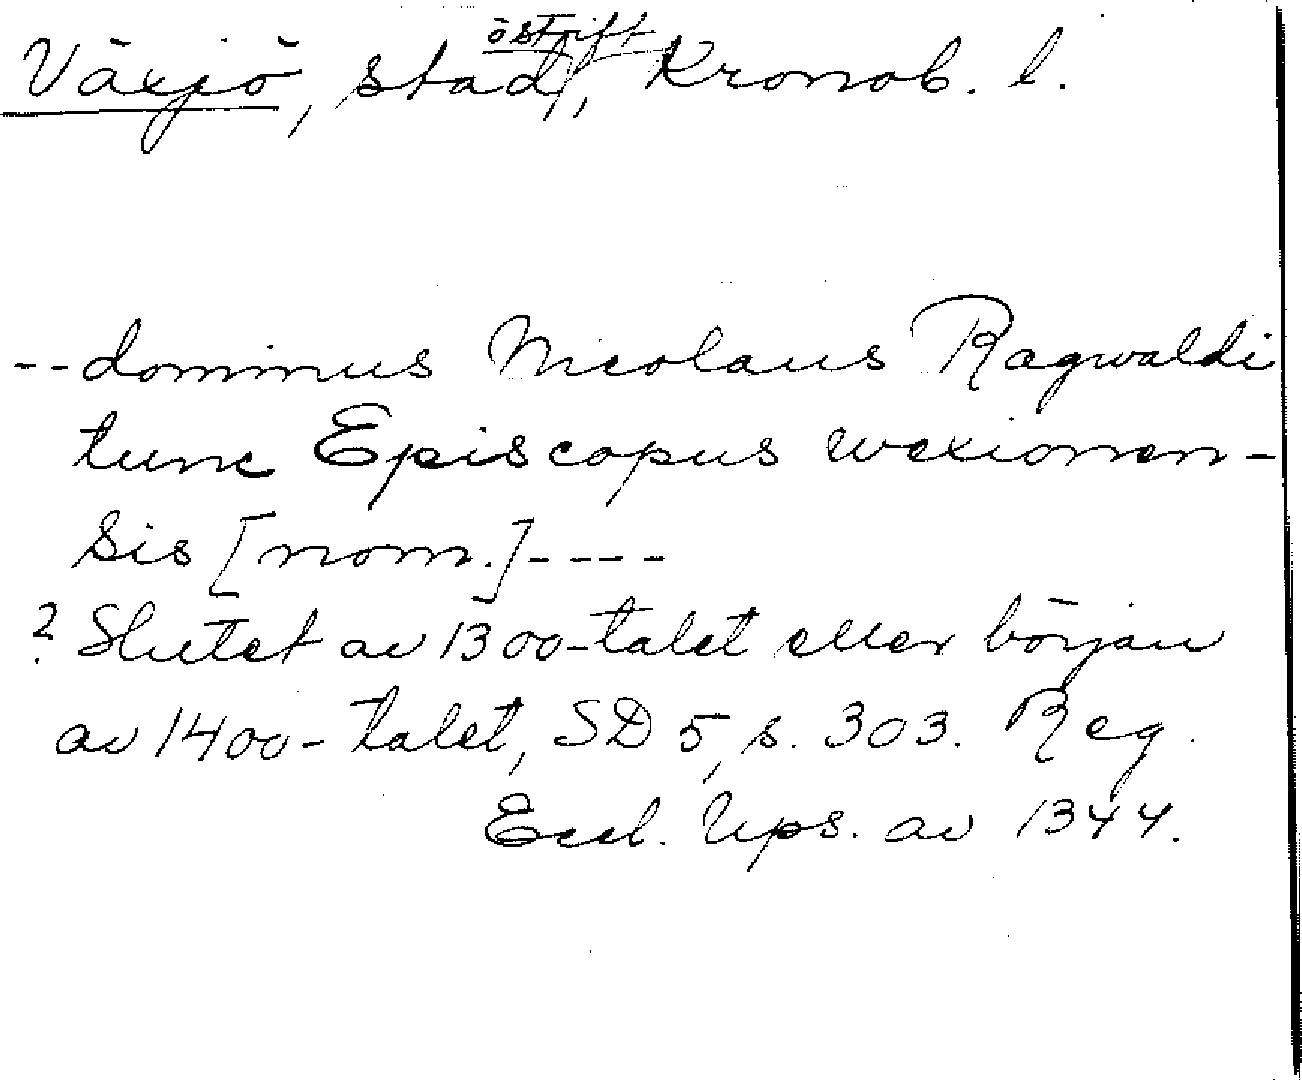 Växjö, stad, Kronob. l.
-- dominus Nicolaus Ragwaldi
tunc Episcopus wexionen-
sis [nom.] ----
? Slutet av 1300-talet eller början
av 1400-talet, SD 5, s. 303. Reg.
Eccl. Ups. av 1344.